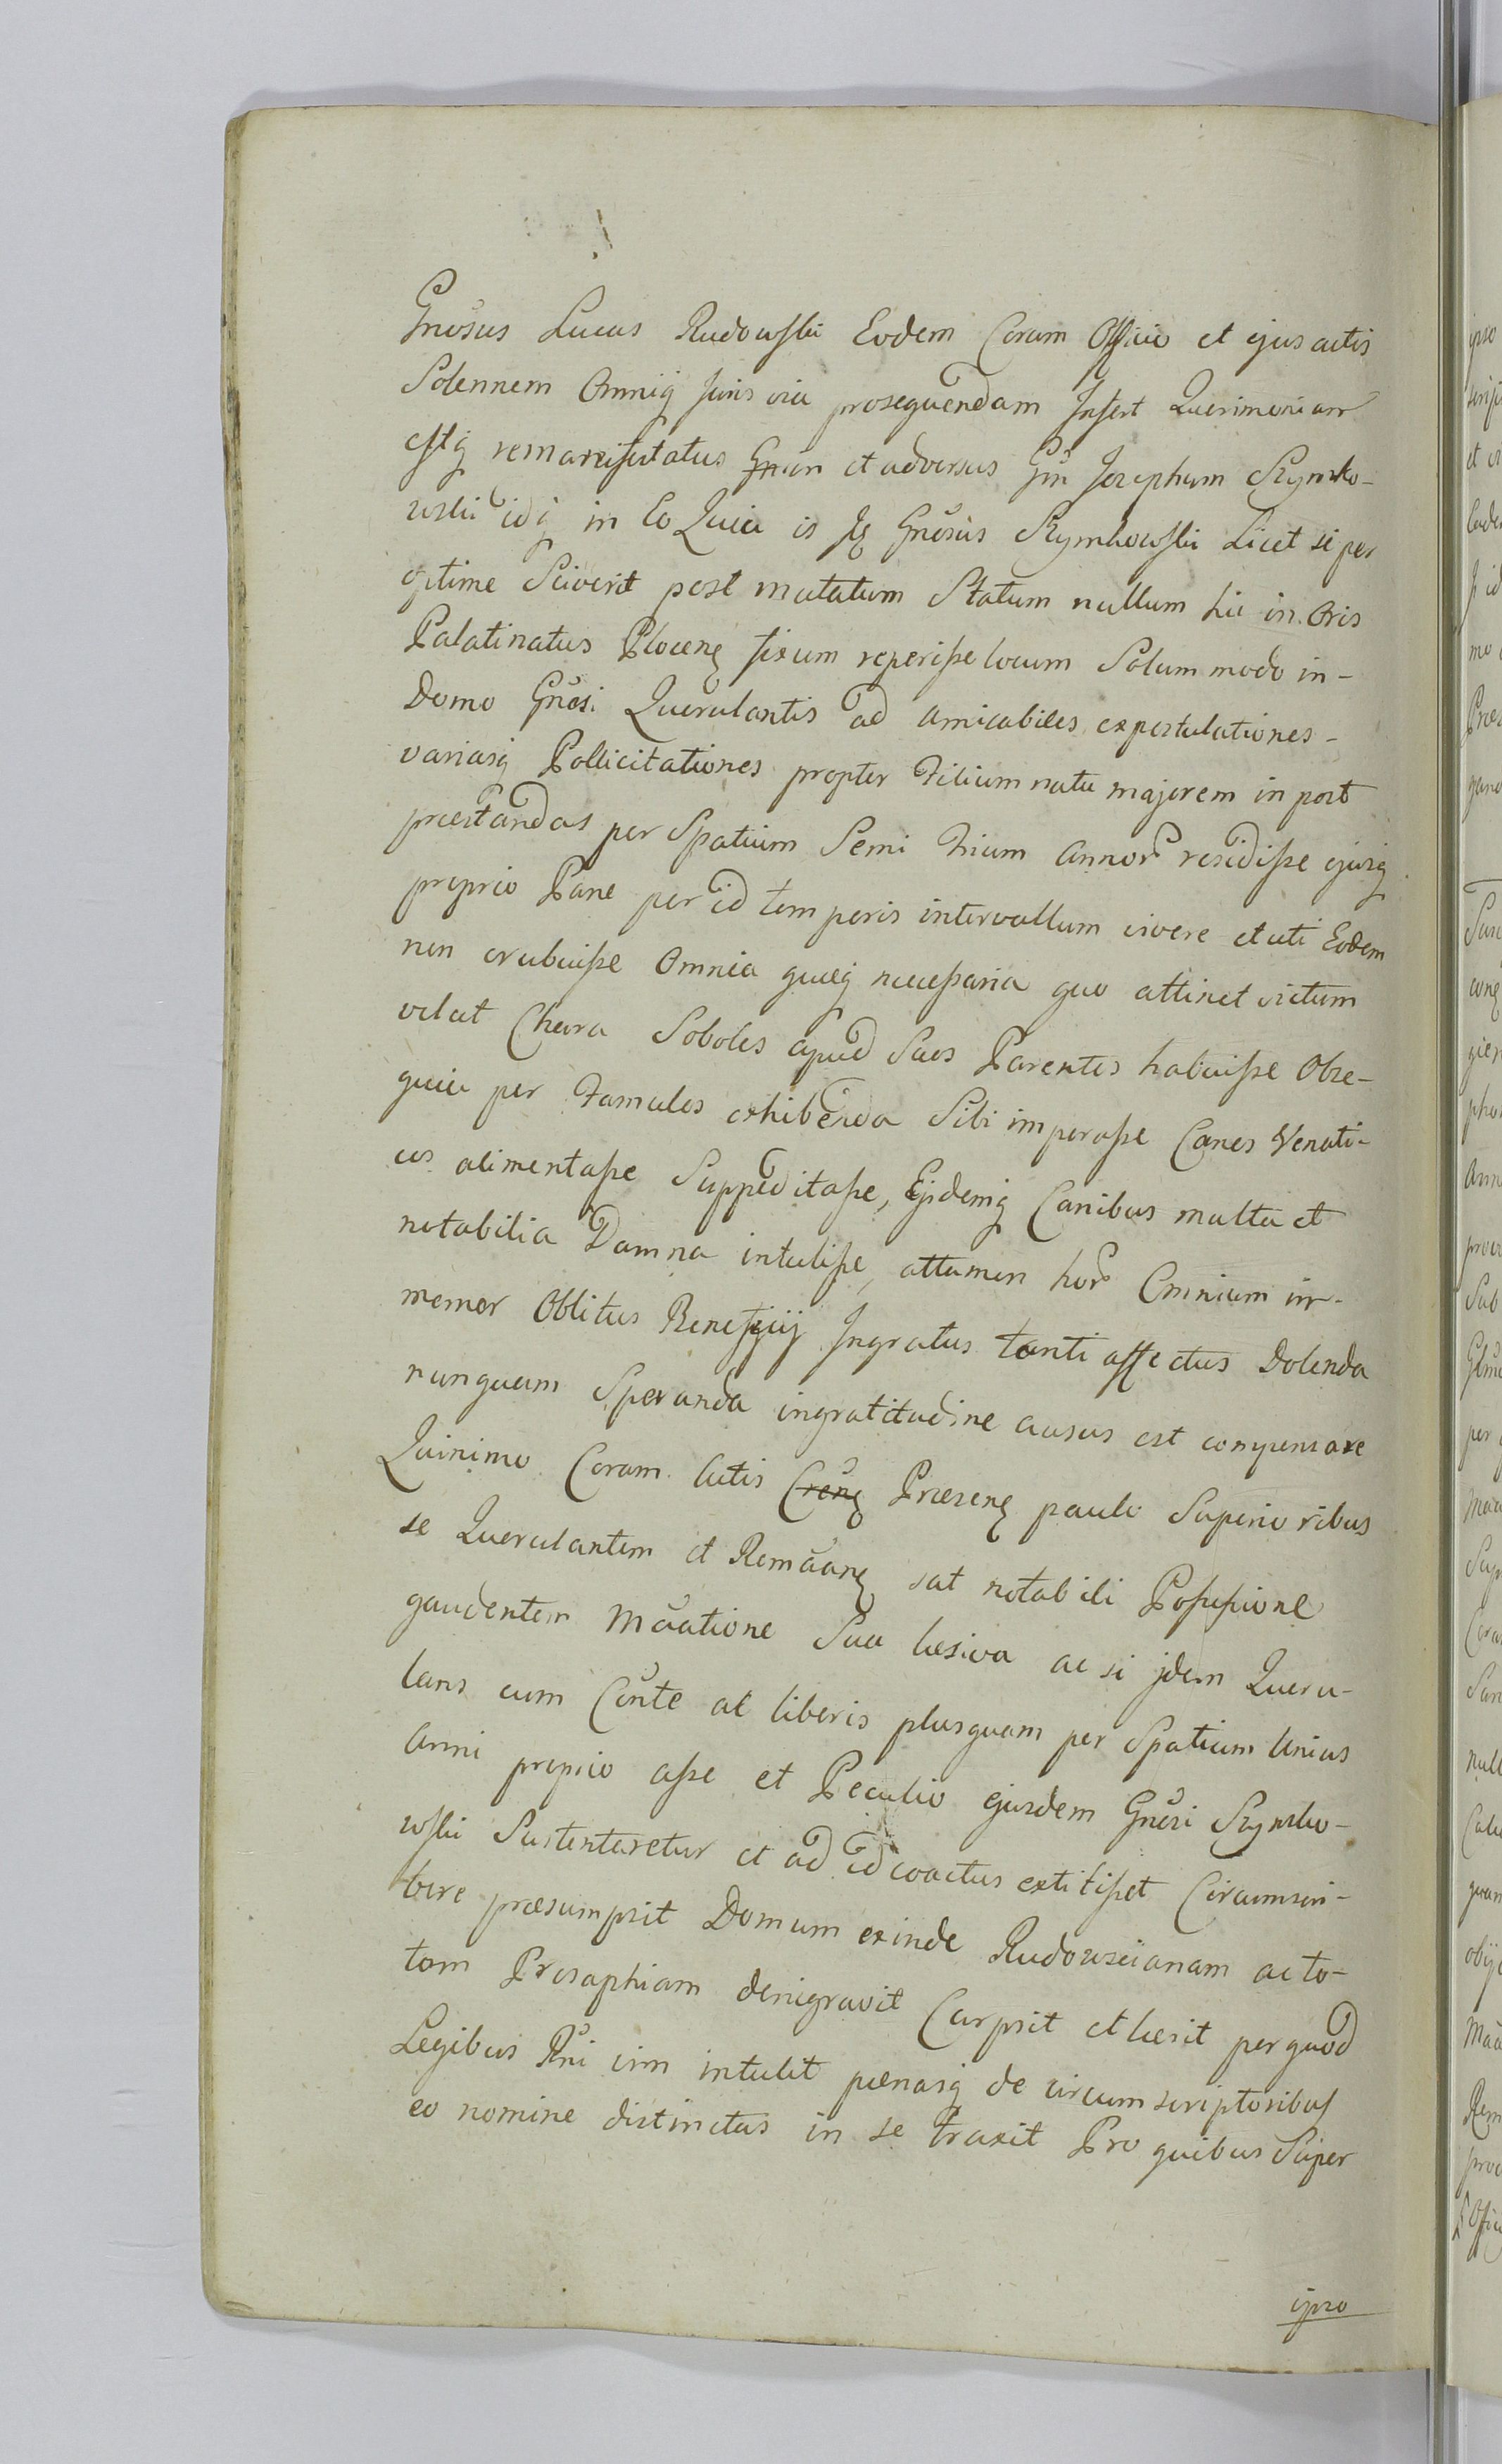 Gnosus Lucas Rudowski Eodem Coram Officio et ejus actis
Solennem Omniq Juris via prosequendam Infert Querimoniam
estq remanifestatus Gnem et adversus Gnm Josephum Szymko-
wski idq in Eo Quia is Gnosus Szymkowski Licet si per
optime Sciverit post mutatum Statum nullum hic in Oris
Palatinatus Plocen fixum reperisse locum Solum modo in-
Domo Gnosi Querulantis ad amicabiles expostulationes-
variasq Pollicitationes propter Filium natu majorem in post
præstandas per Spatium Semi trium Annor residisse ejusq
proprio Pane per id temporis intervallum vivere et uti Eodem
non erubuisse Omnia quæq necessaria quo attinet victum
velut Chara Soboles apud Suos Parentes habuisse Obse-
quia per Famulos exhibenda Sibi imperasse Canes Venati-
cos alimentasse Suppeditasse, Ejsdemq Canibus multa et
notabilia Damna intulisse, attamen hor Omnium im-
memor Oblitus Beneficij Ingratus tanti affectus Dolenda
nunquam Speranda ingratitudine ausus est compensare
Quinimo Coram Actis Cren Præsen paulo Superioribus
se Querulantem et Remaan sat notabili Possessione
gaudentem Maatione Sua læsiva ac si jdem Queru-
lans cum Cónte ac liberis plusquam per Spatium Unius
Anni proprio asse et Peculio ejusdem Gnosi Szymko-
wski Sustentaretur et ad id coactus extitisset Circumscri-
bere præsumpsit Domum exinde Rudowscianam ac to-
tam Prosaphiam denigravit Carpsit et læsit per quod
Legibus Rni vim intulit pœnasq de circumscriptoribus
eo nomine distinctas in se traxit Pro quibus Super
ipso